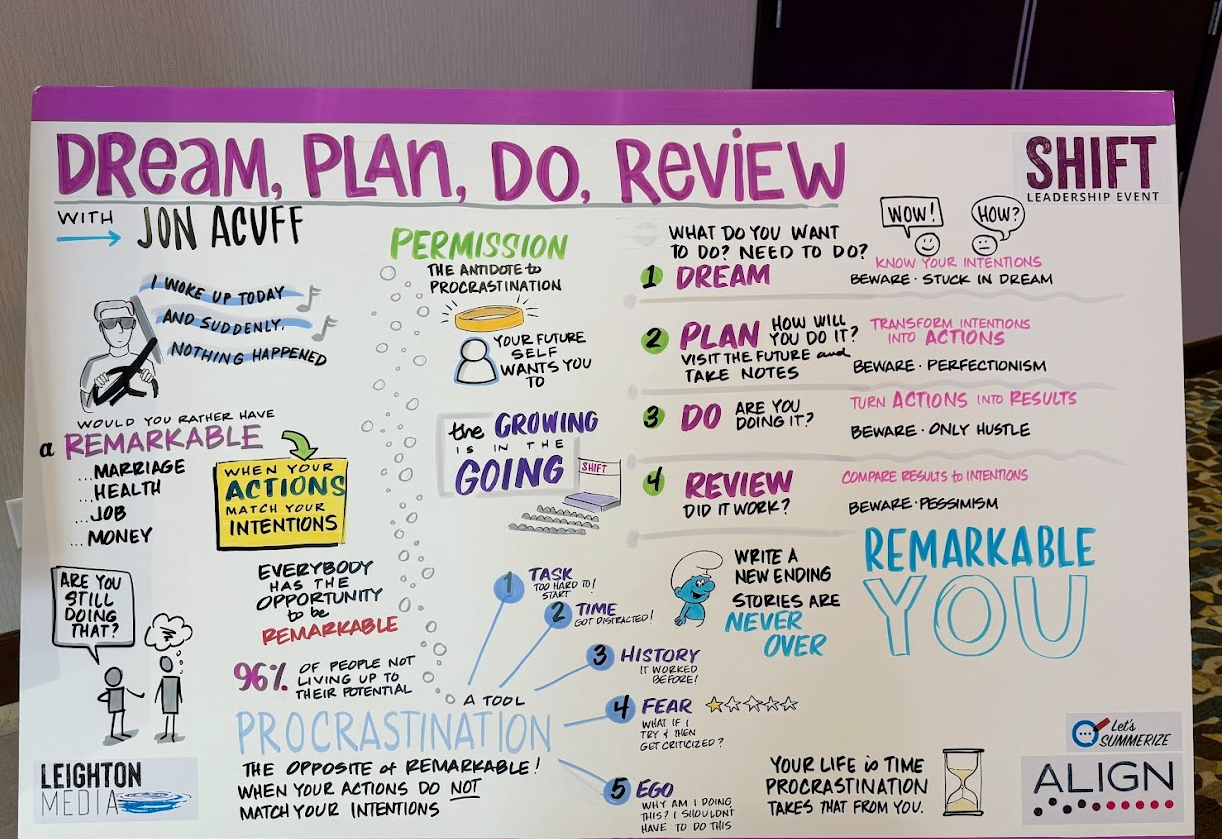 DREAM, PLAN, DO, REVIEW
WITH JON ACUFF
SHIFT
LEADERSHIP EVENT
I WOKE UP TODAY
AND SUDDENLY,
NOTHING HAPPENED
WOULD YOU RATHER HAVE
a REMARKABLE
...MARRIAGE
...HEALTH
...JOB
...MONEY
WHEN YOUR
ACTIONS
MATCH YOUR
INTENTIONS
ARE YOU
STILL
DOING
THAT?
EVERYBODY
HAS THE
OPPORTUNITY
to be
REMARKABLE
96% OF PEOPLE NOT
LIVING UP TO
THEIR POTENTIAL
PERMISSION
THE ANTIDOTE to
PROCRASTINATION
YOUR FUTURE
SELF
WANTS YOU
TO
the GROWING
IS IN THE
GOING
SHIFT
A TOOL
PROCRASTINATION
THE OPPOSITE of REMARKABLE!
WHEN YOUR ACTIONS DO NOT
MATCH YOUR INTENTIONS
1 TASK
TOO HARD TO!
START
2 TIME
GOT DISTRACTED!
3 HISTORY
IT WORKED
BEFORE!
4 FEAR
WHAT IF I
TRY & THEN
GET CRITICIZED?
5 EGO
WHY AM I DOING
THIS? I SHOULDN'T
HAVE TO DO THIS
WHAT DO YOU WANT
TO DO? NEED TO DO?
WOW!
HOW?
1 DREAM
KNOW YOUR INTENTIONS
BEWARE · STUCK IN DREAM
2 PLAN HOW WILL
YOU DO IT?
VISIT THE FUTURE and
TAKE NOTES
TRANSFORM INTENTIONS
INTO ACTIONS
BEWARE · PERFECTIONISM
3 DO ARE YOU
DOING IT?
TURN ACTIONS INTO RESULTS
BEWARE · ONLY HUSTLE
4 REVIEW
DID IT WORK?
COMPARE RESULTS to INTENTIONS
BEWARE · PESSIMISM
WRITE A
NEW ENDING
STORIES ARE
NEVER
OVER
REMARKABLE
YOU
YOUR LIFE is TIME
PROCRASTINATION
TAKES THAT FROM YOU.
LEIGHTON
MEDIA
Let's
SUMMERIZE
ALIGN